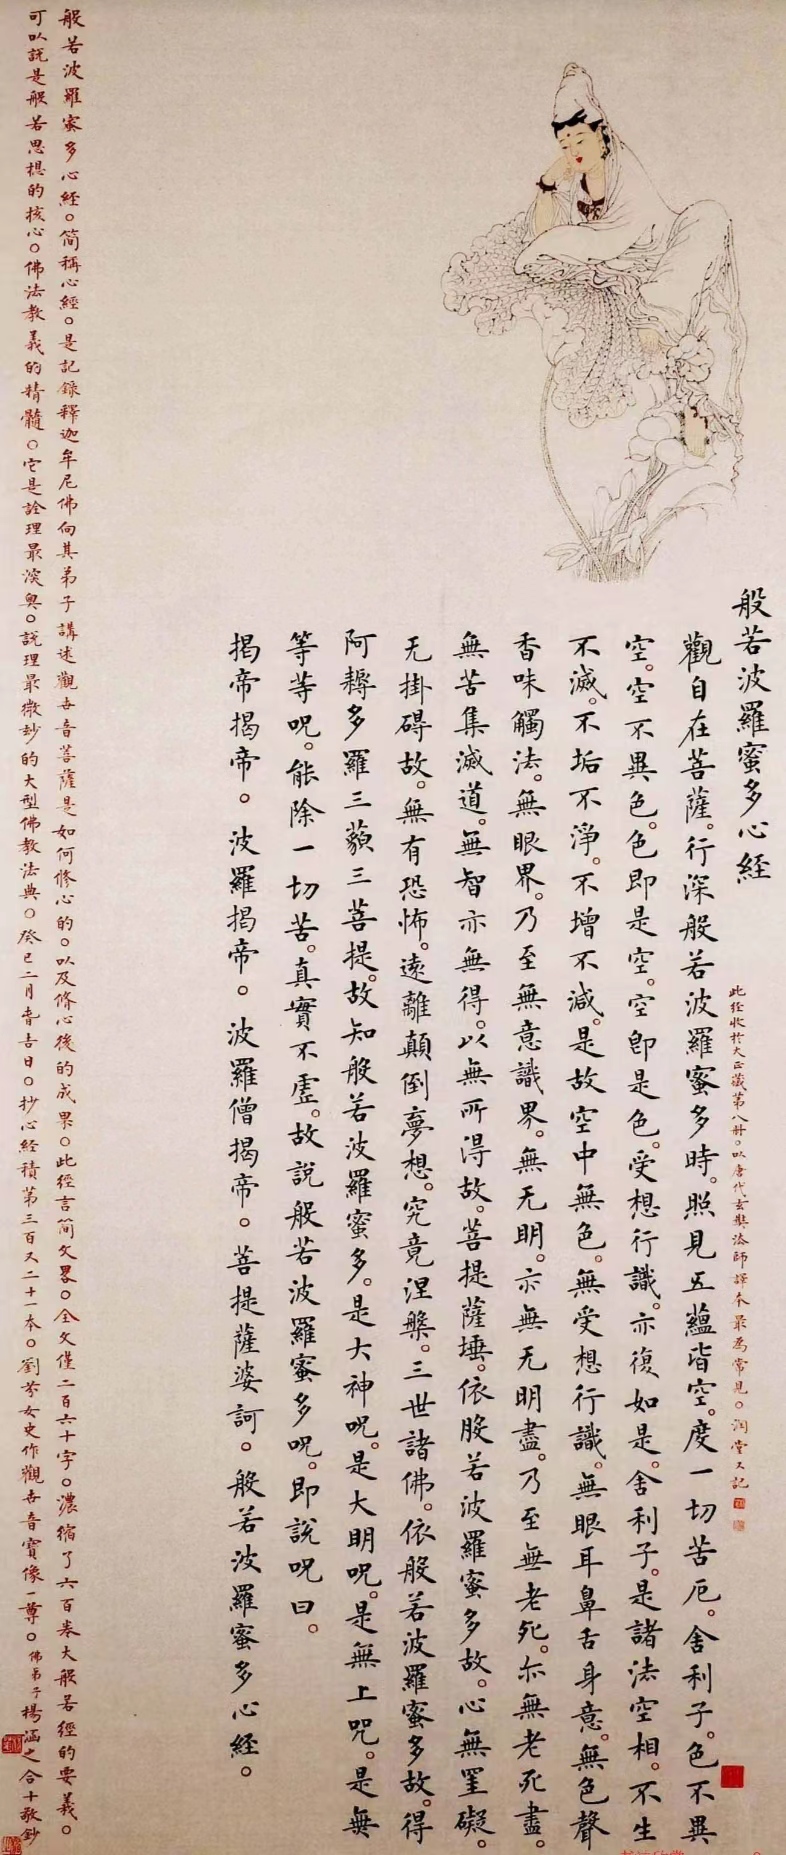 般若波羅蜜多心經
此經收於大正藏第八册。以唐代玄奘法師譯本最為常見。潤堂又記
觀自在菩薩。行深般若波羅蜜多時。照見五蘊皆空。度一切苦厄。舍利子。色不異
空。空不異色。色即是空。空即是色。受想行識。亦復如是。舍利子。是諸法空相。不生
不滅。不垢不淨。不增不減。是故空中無色。無受想行識。無眼耳鼻舌身意。無色聲
香味觸法。無眼界。乃至無意識界。無无明。亦無无明盡。乃至無老死。亦無老死盡。
無苦集滅道。無智亦無得。以無所得故。菩提薩埵。依般若波羅蜜多故。心無罣礙。
无掛碍故。無有恐怖。遠離顛倒夢想。究竟涅槃。三世諸佛。依般若波羅蜜多故。得
阿耨多羅三藐三菩提。故知般若波羅蜜多。是大神咒。是大明咒。是無上咒。是無
等等咒。能除一切苦。真實不虛。故說般若波羅蜜多咒。即說咒曰。
揭帝揭帝。波羅揭帝。波羅僧揭帝。菩提薩婆訶。般若波羅蜜多心經。
般若波羅蜜多心經。简稱心經。是記錄釋迦牟尼佛向其弟子講述觀世音菩薩是如何修心的。以及修心後的成果。此經言简文畧。全文僅二百六十字。濃縮了六百卷大般若經的要義。
可以說是般若思想的核心。佛法教義的精髓。它是詮理最深奥。說理最微妙的大型佛教法典。癸巳二月吉日。抄心經積第三百又二十一本。劉苓女史作觀世音寶像一尊。佛弟子楊涵之合十敬鈔